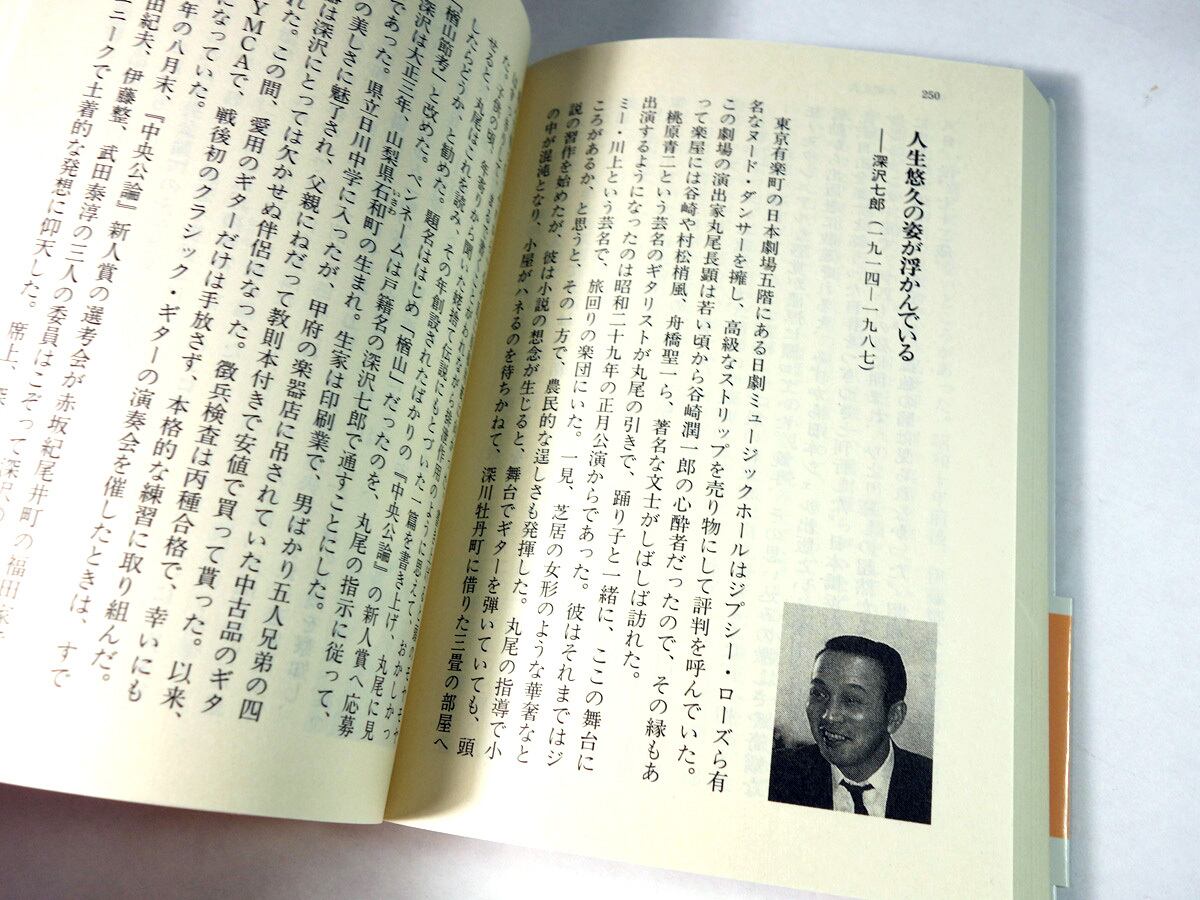 250
人生悠久の姿が浮かんでいる
――深沢七郎(一九一四―一九八七)
東京有楽町の日本劇場五階にある日劇ミュージックホールはジプシー・ローズら有
名なヌード・ダンサーを擁し、高級なストリップを売り物にして評判を呼んでいた。
この劇場の演出家丸尾長顕は若い頃から谷崎潤一郎の心酔者だったので、その縁もあ
って楽屋には谷崎や村松梢風、舟橋聖一ら、著名な文士がしばしば訪れた。
桃原青二という芸名のギタリストが丸尾の引きで、踊り子と一緒に、ここの舞台に
出演するようになったのは昭和二十九年の正月公演からであった。彼はそれまではジ
ミー・川上という芸名で、旅回りの楽団にいた。一見、芝居の女形のような華奢なと
ころがあるか、と思うと、その一方で、農民的な逞しさも発揮した。丸尾の指導で小
説の習作を始めたが、彼は小説の想念が生じると、舞台でギターを弾いていても、頭
の中が混沌となり、小屋がハネるのを待ちかねて、深川牡丹町に借りた三畳の部屋へ
せると、丸尾はこれを読み、その年創設されたばかりの『中央公論』の新人賞へ応募
したらどうか、と勧めた。題名ははじめ「楢山」だったのを、丸尾の指示に従って、
「楢山節考」と改めた。ペンネームは戸籍名の深沢七郎で通すことにした。
深沢は大正三年、山梨県石和町の生まれ。生家は印刷業で、男ばかり五人兄弟の四
であった。県立日川中学に入ったが、甲府の楽器店に吊されていた中古品のギタ
の美しさに魅了され、父親にねだって教則本付きで安値で買って貰った。以来、
は深沢にとっては欠かせぬ伴侶になった。徴兵検査は丙種合格で、幸いにも
れた。この間、愛用のギターだけは手放さず、本格的な練習に取り組んだ。
YMCAで、戦後初のクラシック・ギターの演奏会を催したときは、すで
になっていた。
年の八月末、『中央公論』新人賞の選考会が赤坂紀尾井町の福田家
田紀夫、伊藤整、武田泰淳の三人の委員はこぞって深沢の
ニークで土着的な発想に仰天した。席上、